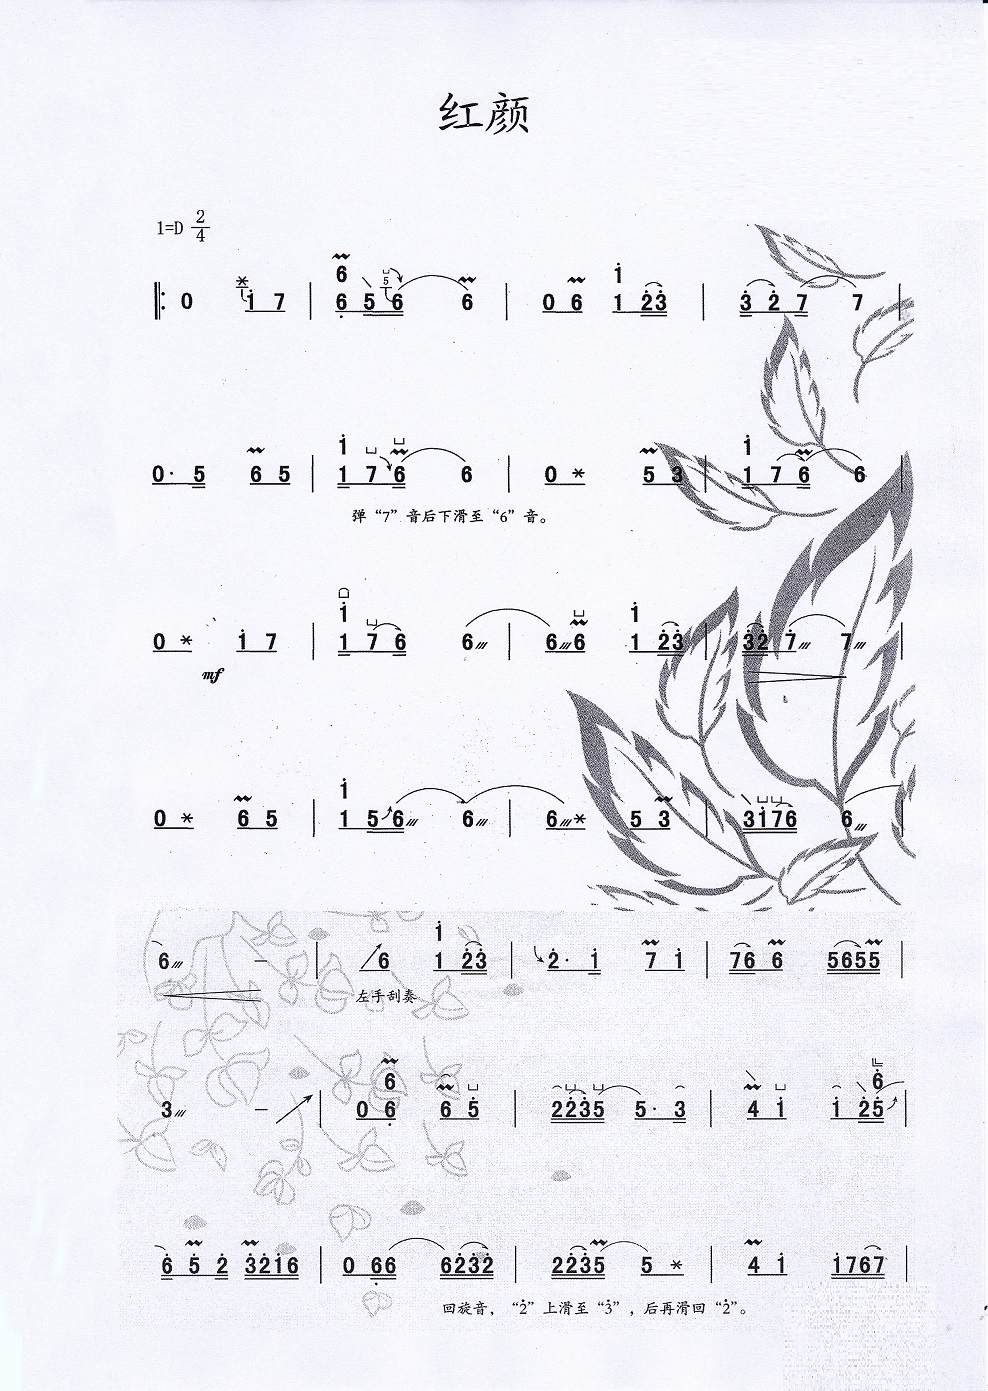 红颜
1=D 2/4
0 i 7 | 6 6 5 5 6 6 | 0 6 i 1 2 3 | 3 2 7 7 |
0· 5 6 5 | i 1 7 6 6 | 0 * 5 3 | i 1 7 6 6 |
弹“7”音后下滑至“6”音。
0 * i 7 | i 1 7 6 6 | 6 6 i 1 2 3 | 3 2 7 7 |
mf
0 * 6 5 | i 1 5 6 6 | 6 * 5 3 | 3 i 7 6 6 |
6 – | 6 i 1 2 3 | 2· i 7 i | 7 6 6 5 6 5 5 |
左手刮奏
3 – | 0 6 6 6 5 | 2 2 3 5 5· 3 | 4 i i 2 5 6 |
6 5 2 3 2 1 6 | 0 6 6 6 2 3 2 | 2 2 3 5 5 * | 4 i i 7 6 7 |
回旋音，“2̇”上滑至“3̇”，后再滑回“2̇”。